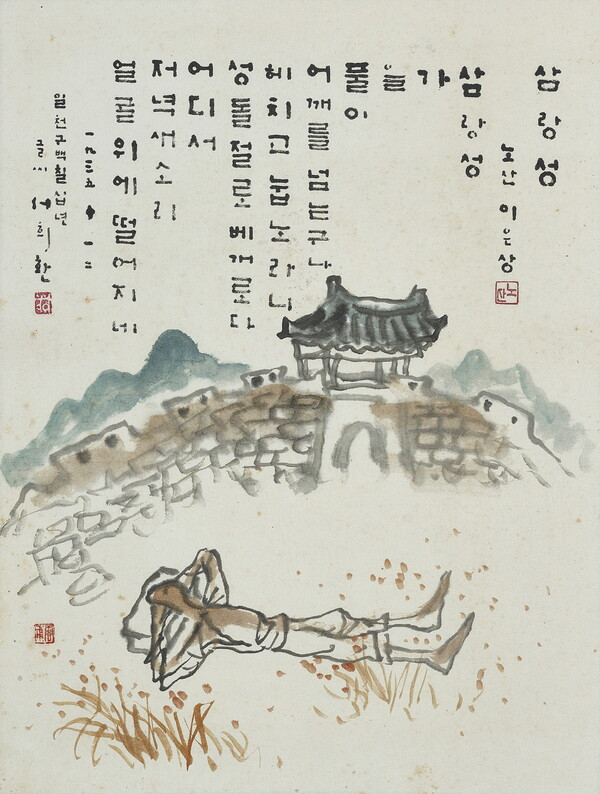 삼랑성
노산 이은상
삼랑성
가
을
풀이
어깨를 넘는구나
헤치고 눕노라니
성돌 절로 베개로다
어디서
저녁새소리
얼굴 위에 떨어지네
일천구백팔십년
글씨 서희환